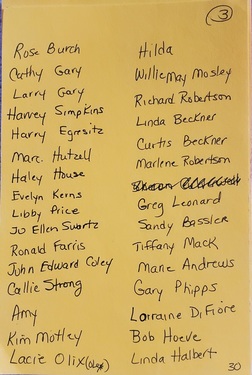 3
Rose Burch
Cathy Gary
Larry Gary
Harvey Simpkins
Harry Egresitz
Marc Hutzell
Haley House
Evelyn Kerns
Libby Price
Jo Ellen Swartz
Ronald Farris
John Edward Coley
Callie Strong
Amy
Kim Motley
Lacie Olix
Hilda
Willie May Mosley
Richard Robertson
Linda Beckner
Curtis Beckner
Marlene Robertson
Greg Leonard
Sandy Bassler
Tiffany Mack
Marie Andrews
Gary Phipps
Lorraine DiFiore
Bob Hoeve
Linda Halbert
30